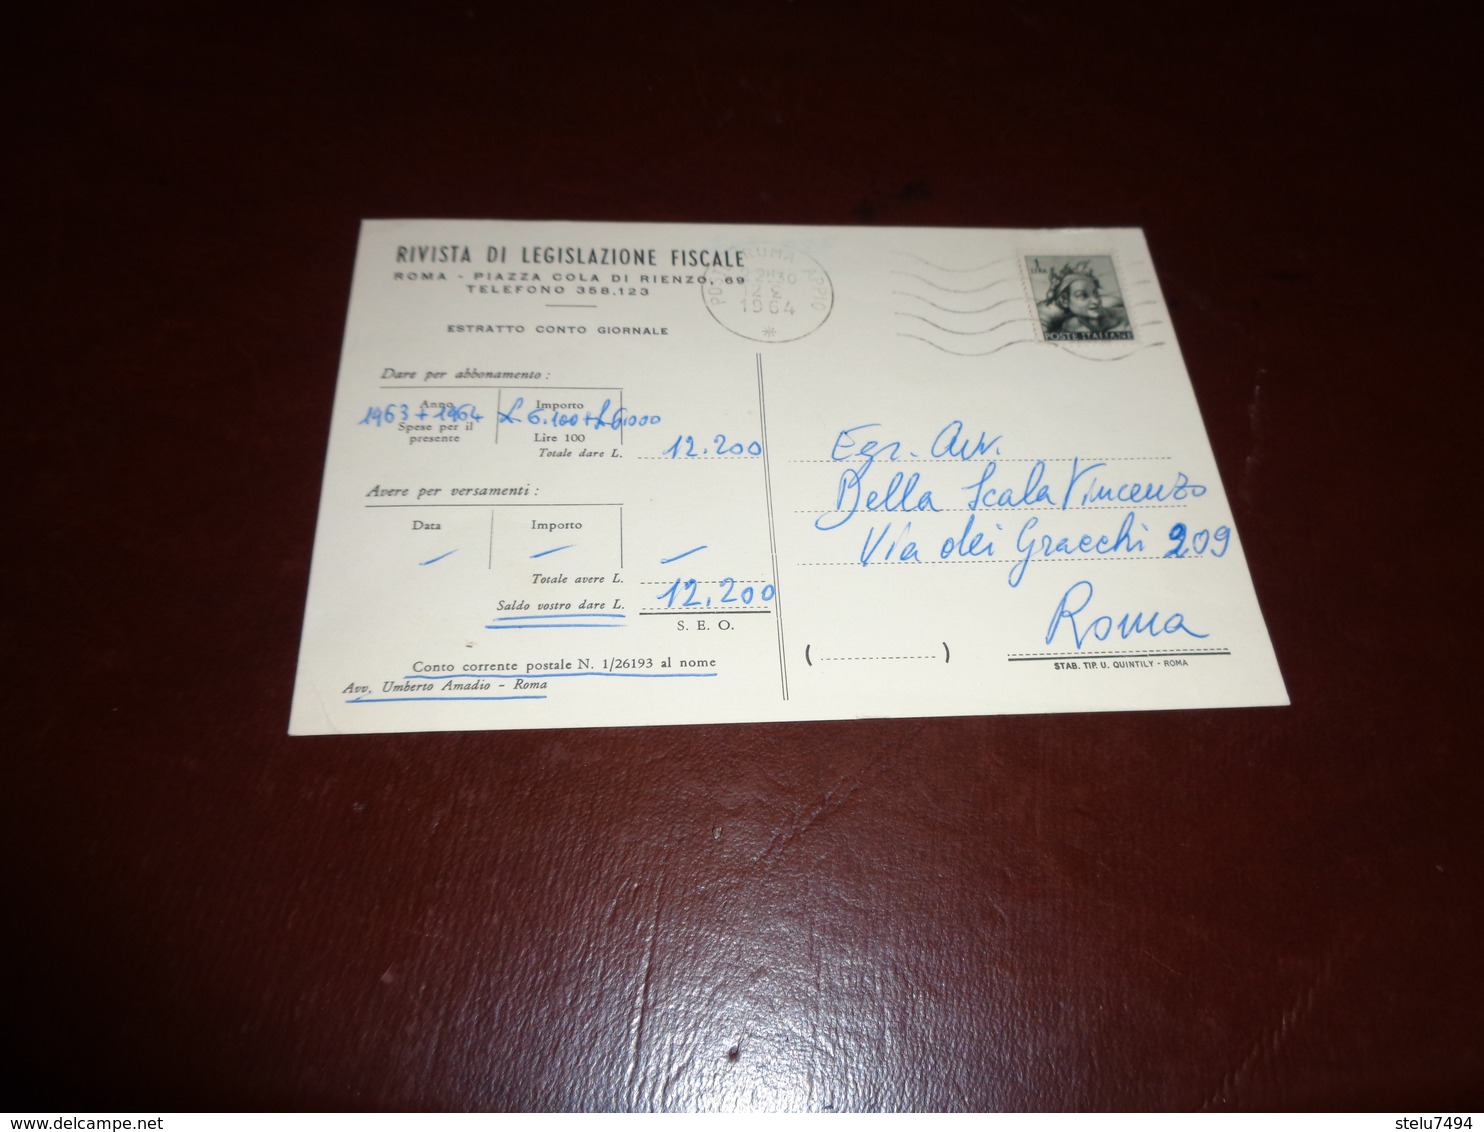 RIVISTA DI LEGISLAZIONE FISCALE
ROMA - PIAZZA COLA DI RIENZO, 69
TELEFONO 358.123
ESTRATTO CONTO GIORNALE
Dare per abbonamento :
Anno Importo
1963 + 1964 £ 6.100 + £ 6.000
Spese per il
presente Lire 100
Totale dare L. 12.200
Avere per versamenti :
Data Importo
Totale avere L.
Saldo vostro dare L. 12.200
S. E. O.
Conto corrente postale N. 1/26193 al nome
Avv. Umberto Amadio - Roma
POSTE ROMA APPIO
1964
1
LIRA
POSTE ITALIANE
Egr. Avv.
Della Scala Vincenzo
Via dei Gracchi 209
Roma
( )
STAB. TIP. U. QUINTILY - ROMA
stelu7494